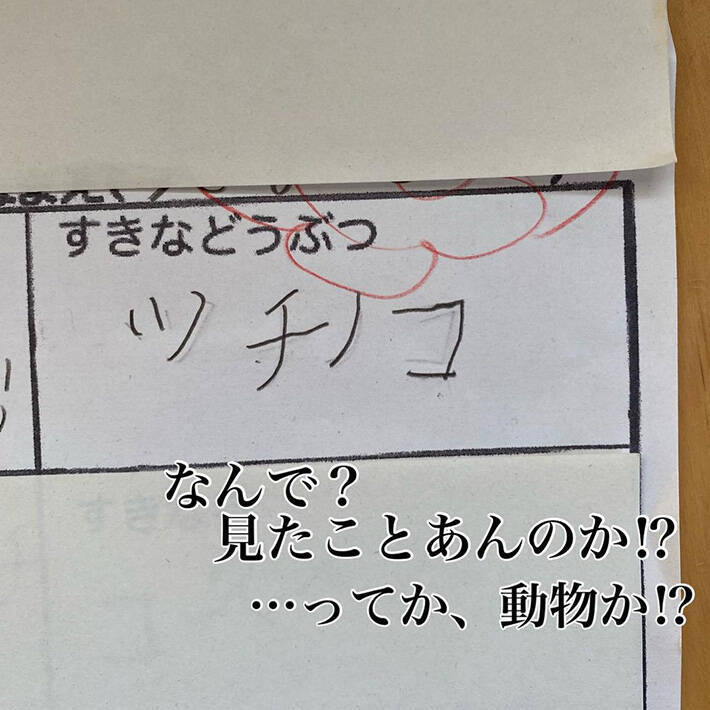 すきなどうぶつ
ツチノコ
なんで?
見たことあんのか⁉
…ってか、動物か⁉